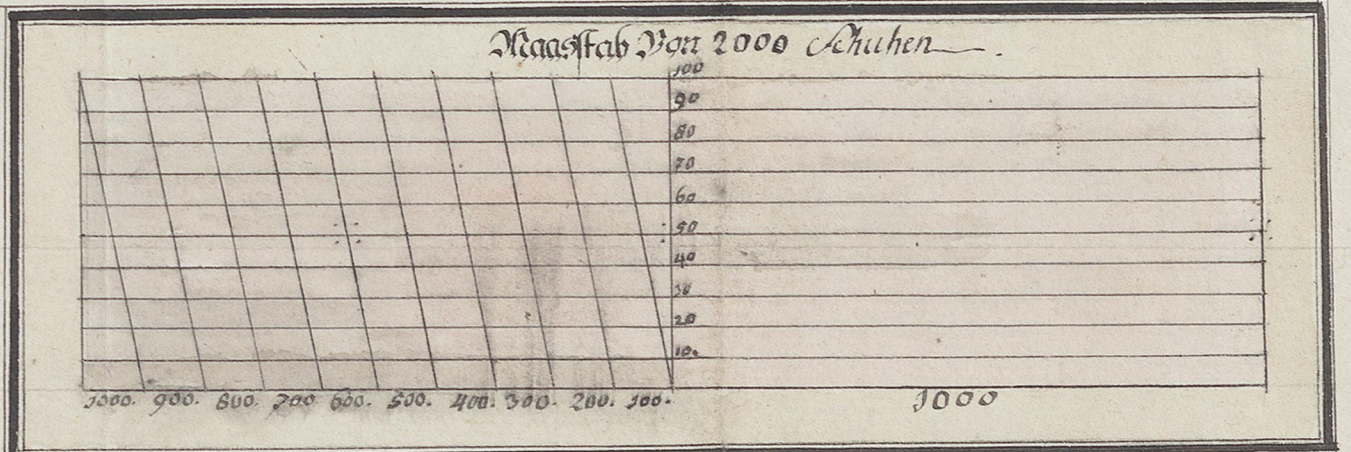 Maasstab Von 2000 Schuhen
100
90
80
70
60
50
40
30
20
10.
1000. 900. 800. 700 600. 500. 400. 300. 200. 100.
1000